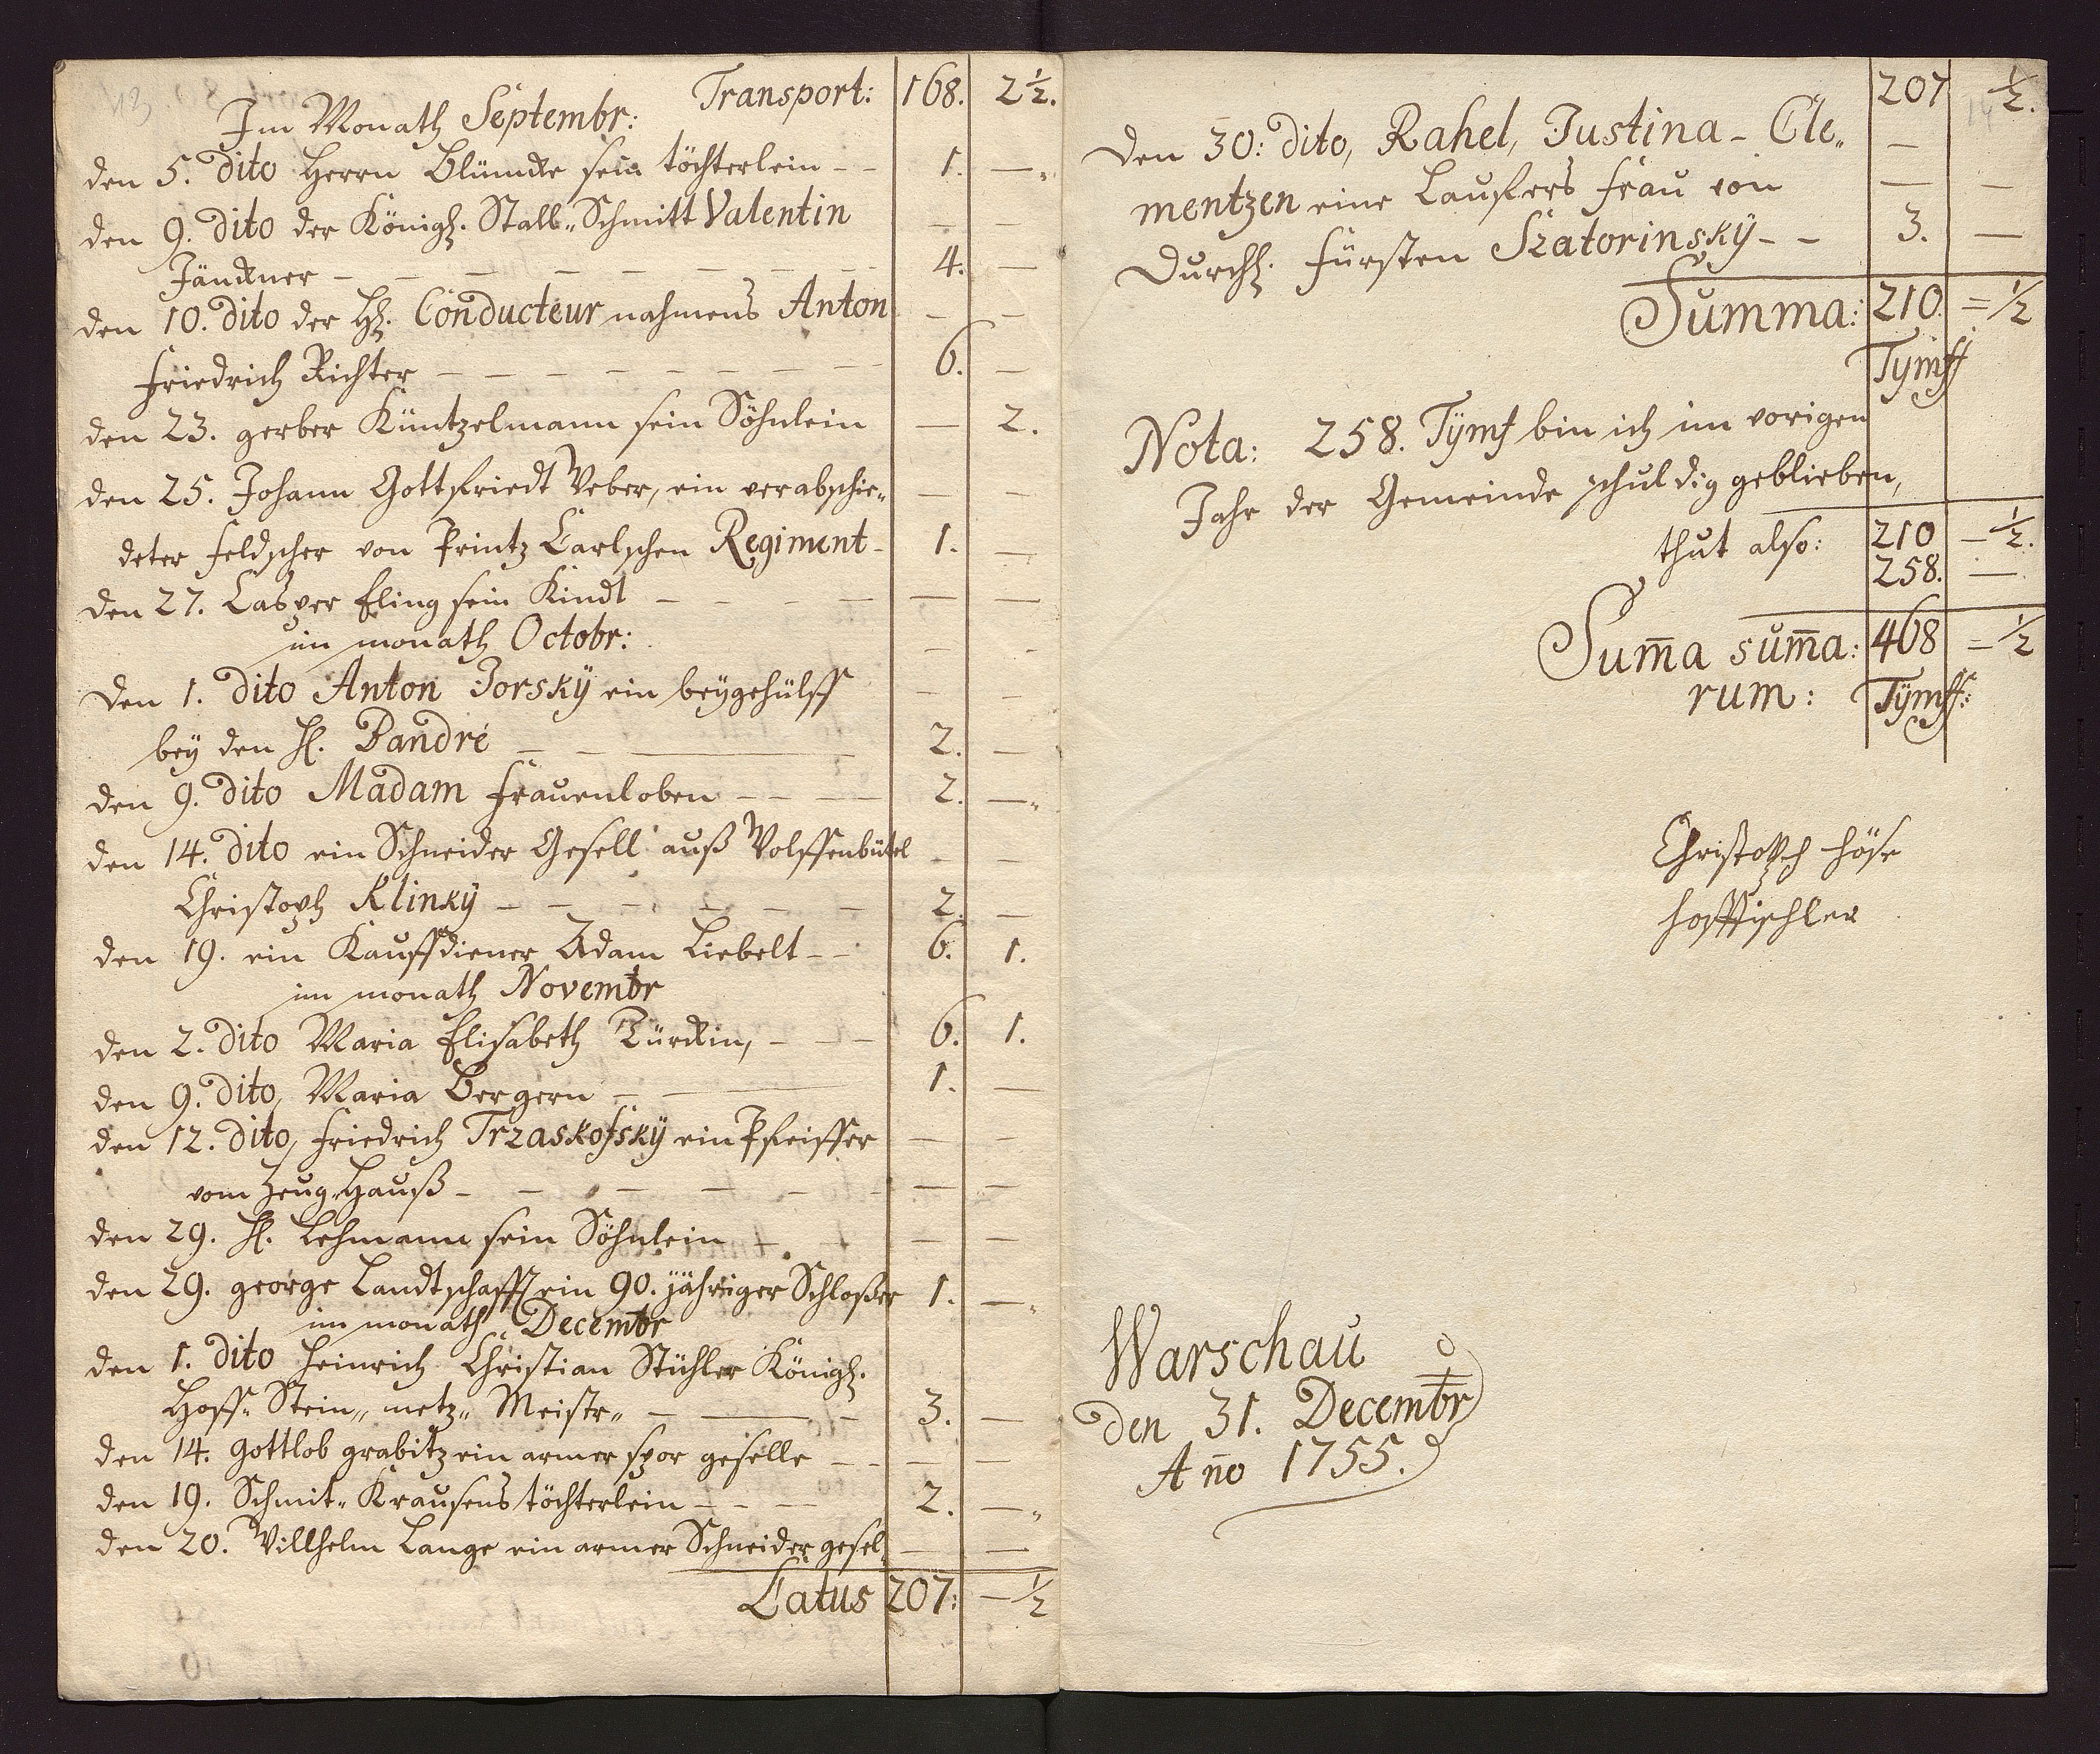 13
Transport: 168. 2½.
Im Monath Septembr:
den 5. dito Herrn Blümke sein töchterlein - - 1. —
den 9. dito der Königl. Stall„Schmitt Valentin — —
Jänckner - - - - - - - 4. —
den 10. dito der H. Conducteur nahmens Anton — —
Friedrich Richter - - - - - - - 6. —
den 23. gerber Küntzelmann sein Söhnlein — 2.
den 25. Johann Gottfriedt Weber, ein verabschie„ — —
deter feldscher von Printz Carlschen Regiment - 1. —
den 27. Casper Eling sein Kindt - - - — —
im monath Octobr: — -
den 1. dito Anton Jorskÿ ein beÿgehülff — —
beÿ den H. Pandré - - — 2. —
den 9. dito Madam Frauenloben - - - 2. —
den 14. dito ein Schneider Gesell auß Wolffenbütel - —
Christoph Klinkÿ - - - - - - 2. —
den 19. ein Kauffdiener Adam Liebelt - - 6. 1.
im monath Novembr
den 2. dito Maria Elisabeth Türckin, - - - 6. 1.
den 9. dito, Maria Bergern - — 1. —
den 12. dito, Friedrich Trzaskofskÿ ein Pfeiffer — —
vom Zeug„Hauß - - - - - - — —
den 29. H. Lehmann sein Söhnlein - - — —
den 29. george Landtschafft ein 90. jähriger Schloßer 1. —
im monath Decembr
den 1. dito Heinrich Christian Stühler Königl.
Hoff„ Stein„ metz„ Meister„ - — - 3. —
den 14. Gottlob grabitz ein armer spor geselle - - — —
den 19. Schmit„ Krausens töchterlein - - - 2. —
den 20. Willhelm Lange ein armer Schneider gesel„ — —
Latus 207: - ½
207 ½.
den 30: dito, Rahel, Justina - Cle„ —
mentzen eine Lauffers frau von — —
Durchl. Fürsten Szatorinskÿ - - 3. —
Summa: 210. = ½
Tÿmff
Nota: 258. Tÿmf bin ich im vorigen
Jahr der Gemeinde schuldig geblieben,
thut also: 210 - ½.
258. —
Sum̄a sum̄a: 468 = ½
rum: Tÿmff:
Christoph Höse
Hofftischler
Warschau
den 31. Decembr
An̄o 1755.